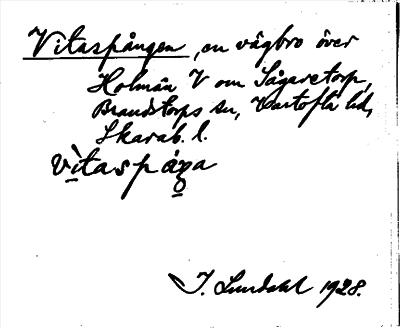 Vitaspången, en vägbro över
Holmån V om Sågaretorp,
Brandstorps sn, Vartofta hd,
Skarab. l.
vìtaspáŋa
I. Lundahl 1928.